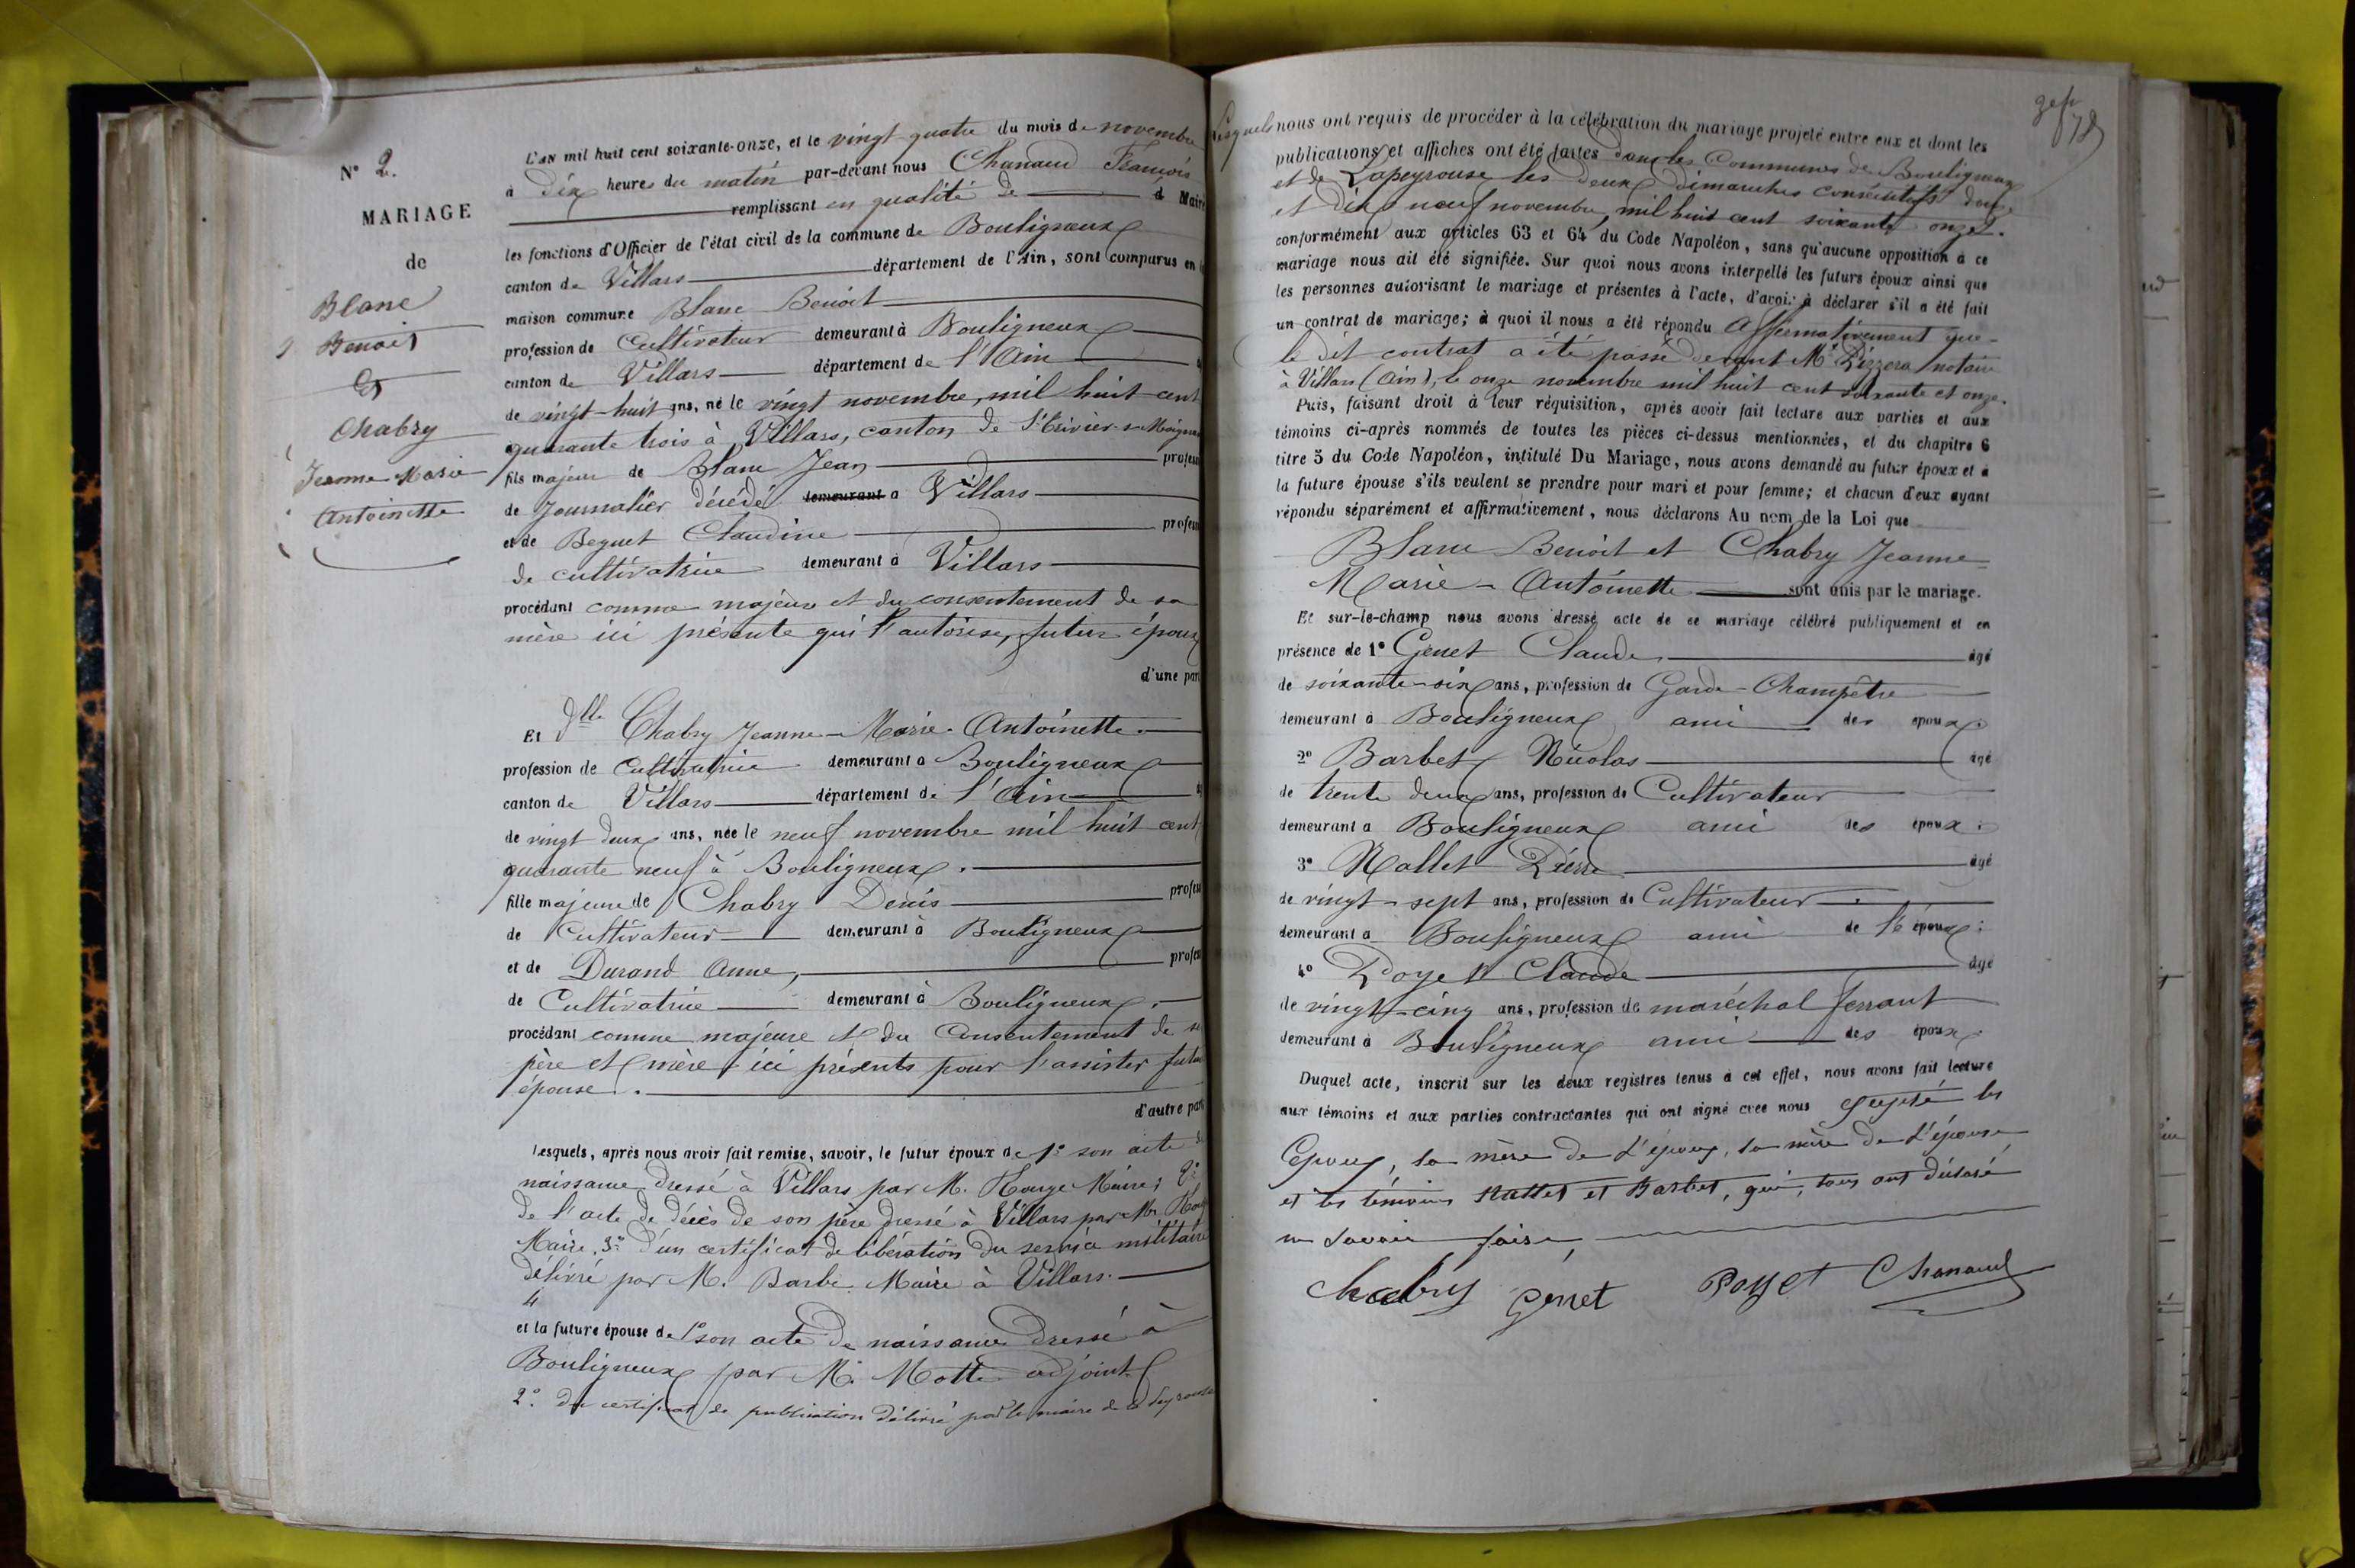 N° 2.
MARIAGE
de
Blanc
Benoit
Et
Chabry
Jeanne Marie
Antoinette
L'AN mil huit cent soixante-onze, et le vingt quatre du mois de novembre
à dix heures du matin par-devant nous Chanaud François
remplissant en qualité de d Maire
les fonctions d'Officier de l'état civil de la commune de Bouligneux
canton de Villars département de l'Ain, sont comparus en la
maison commune Blanc Benoit
profession de Cultivateur demeurant à Bouligneux
canton de Villars département de l'Ain
de vingt-huit ans, né le vingt novembre, mil huit cent
quarante trois à Villars, canton de St Trivier s Moignans
fils majeur de Blanc Jean profess
de Journalier décédé demeurant a Villars
et de Beguet Claudine profess
de cultivatrice demeurant à Villars
procédant comme majeur et du consentement de sa
mère ici présente qui l'autorise, futur époux
d'une part
Et Dlle Chabry Jeanne-Marie-Antoinette
profession de Cultivatrice demeurant a Bouligneux
canton de Villars département de l'Ain
de vingt deux ans, née le neuf novembre mil huit cent
quarante neuf à Bouligneux.
fille majeure de Chabry Denis profess
de Cultivateur demeurant à Bouligneux
et de Durand Anne, profess
de Cultivatrice demeurant à Bouligneux.
procédant comme majeure et du Consentement de se
père et mère ici présents pour l'assister future
épouse.
d'autre part
Lesquels, après nous avoir fait remise, savoir, le futur époux de 1° son acte de
naissance dressé à Villars par M. Rouge Maire; 2°
de l'acte de décès de son père dressé à Villars par Mr Rouge
Maire. 3° d'un certificat de libération du service militaire
délivré par M. Barbe Maire à Villars.
4
et la future épouse de 1° son acte de naissance dressé à
Bouligneux par M. Motte adjoint
2°. Du certificat de publication délivré par le maire de la Peyrouse
Lesquels nous ont requis de procéder à la célébration du mariage projeté entre eux et dont les
publications et affiches ont été faites dans les Communes de Bouligneux
et de Lapeyrouse les deux dimanches consécutifs douze
et dix neuf novembre, mil huit cent soixante onze.
conformément aux articles 63 et 64 du Code Napoléon, sans qu'aucune opposition à ce
mariage nous ait été signifiée. Sur quoi nous avons interpellé les futurs époux ainsi que
les personnes autorisant le mariage et présentes à l'acte, d'avoir à déclarer s'il a été fait
un contrat de mariage; à quoi il nous a été répondu Affirmativement que
le dit contrat a été passé devant Me Pizzera notaire
à Villars (Ain), le onze novembre mil huit cent soixante et onze.
Puis, faisant droit à leur réquisition, après avoir fait lecture aux parties et aux
témoins ci-après nommés de toutes les pièces ci-dessus mentionnées, et du chapitre 6
titre 5 du Code Napoléon, intitulé Du Mariage, nous avons demandé au futur époux et à
la future épouse s'ils veulent se prendre pour mari et pour femme; et chacun d'eux ayant
répondu séparément et affirmativement, nous déclarons Au nom de la Loi que
Blanc Benoit et Chabry Jeanne-
Marie-Antoinette sont unis par le mariage.
Et sur-le-champ nous avons dressé acte de ce mariage célébré publiquement et en
présence de 1° Genet Claude âgé
de soixante-six ans, profession de Garde-Champêtre
demeurant à Bouligneux ami des époux
2° Barbet Nicolas âgé
de trente deux ans, profession de Cultivateur
demeurant a Bouligneux ami des époux.
3° Nallet Pierre âgé
de vingt-sept ans, profession de Cultivateur
demeurant a Bouligneux ami de l'époux:
4° Poyet Claude âgé
de vingt-cinq ans, profession de maréchal ferrant
demeurant à Bouligneux ami des époux.
Duquel acte, inscrit sur les deux registres tenus à cet effet, nous avons fait lecture
aux témoins et aux parties contractantes qui ont signé avec nous excepté les
Epoux, la mère de l'époux, la mère de l'épouse
et les témoins Nallet et Barbet, qui, tous ont déclaré
ne savoir faire,
Chabry Genet Poyet Chanaud